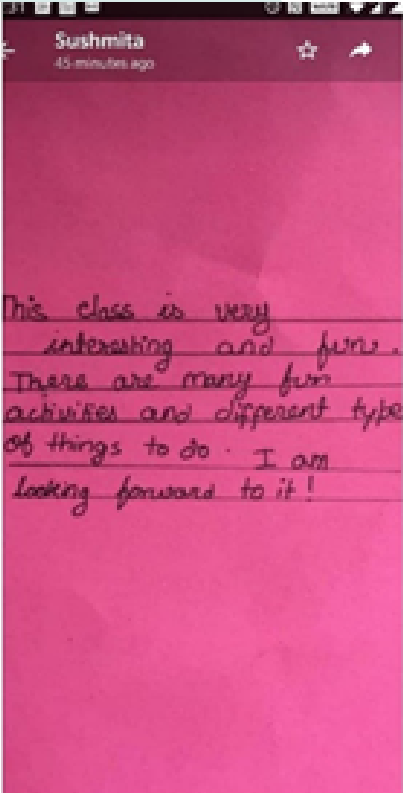 Sushmita
45 minutes ago
This class is very
interesting and fun.
There are many fun
activities and different type
of things to do. I am
looking forward to it!